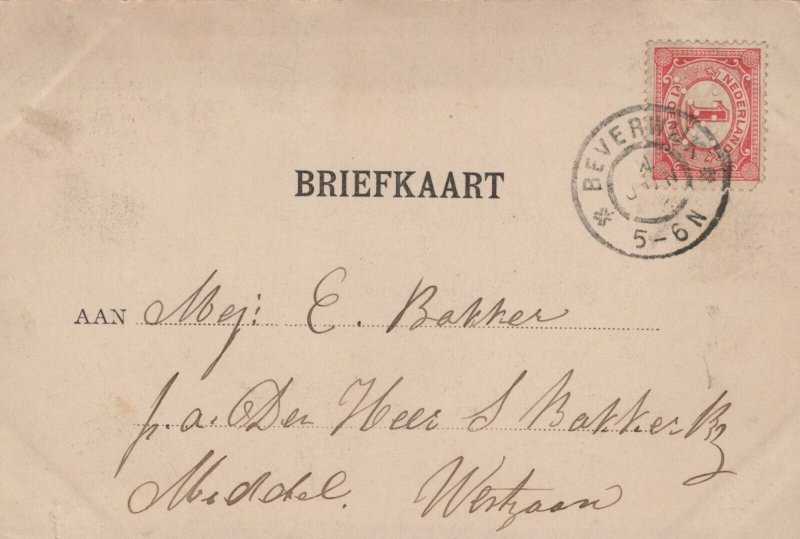 NEDERLAND
1
CENT
BEVERWIJK
5-6N
BRIEFKAART
AAN Mej: E. Bakker
p.a. Den Heer S Bakker Bz
Middel. Westzaan